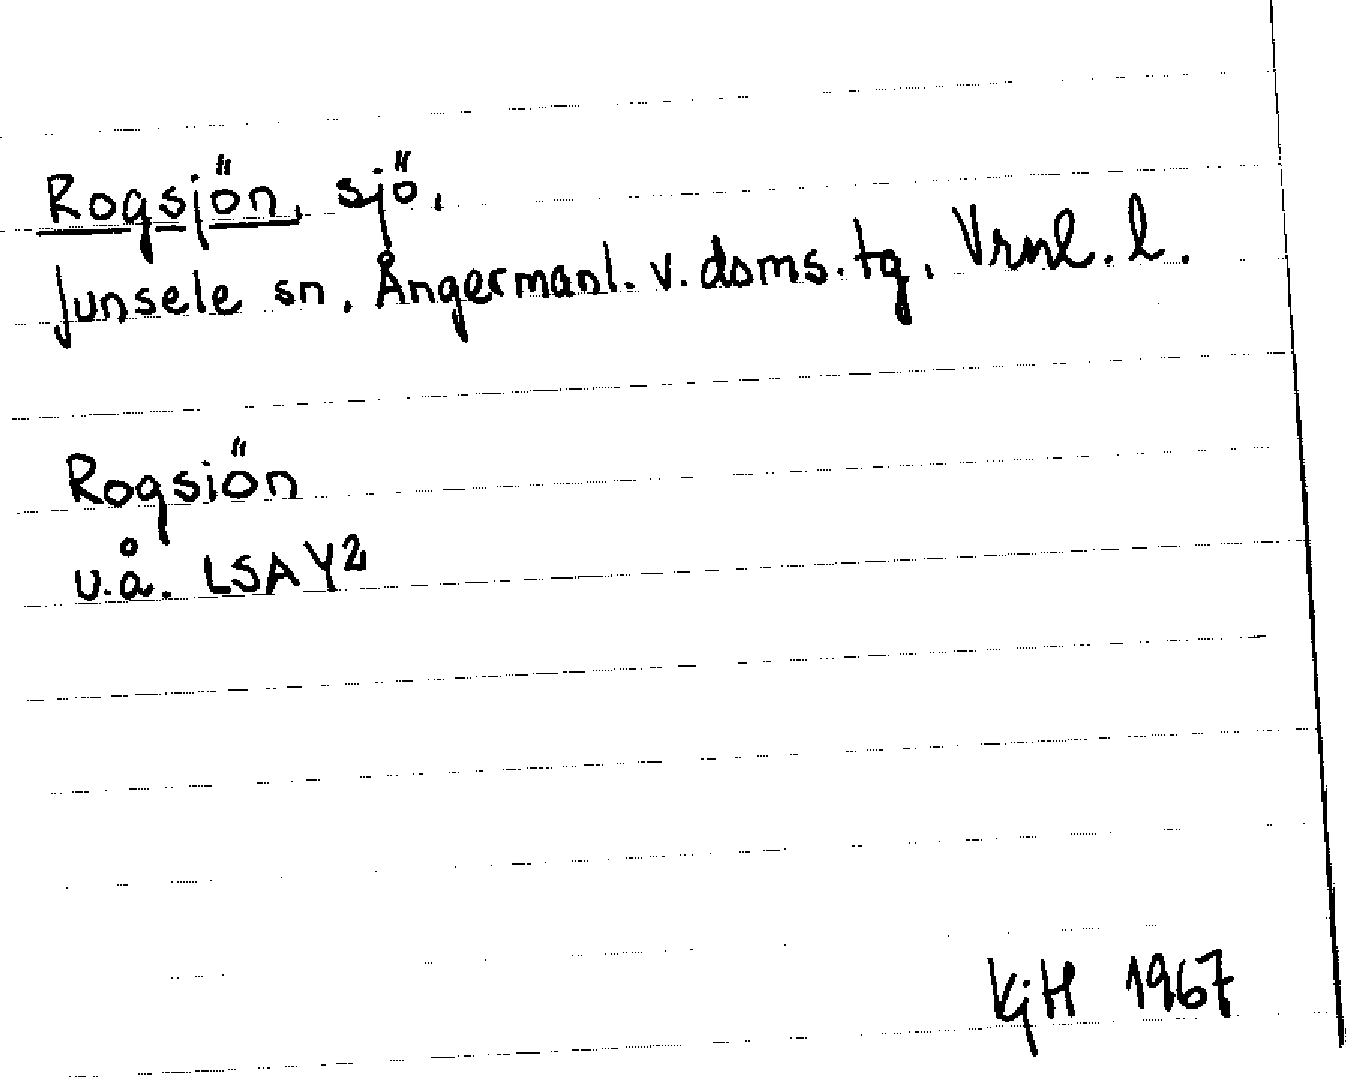 Rogsjön, sjö.
Junsele sn. Ångermanl. v. doms. tg. Vrnl. l.
Rogsiön
u.å. LSA Y2
KjH 1967